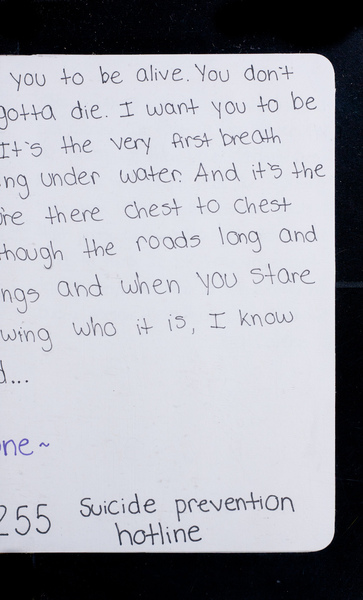 you to be alive. You don't
gotta die. I want you to be
It's the very first breath
ng under water. And it's the
're there chest to chest
hough the roads long and
ngs and when you stare
wing who it is, I know
d...
ne ~
255 Suicide prevention
hotline